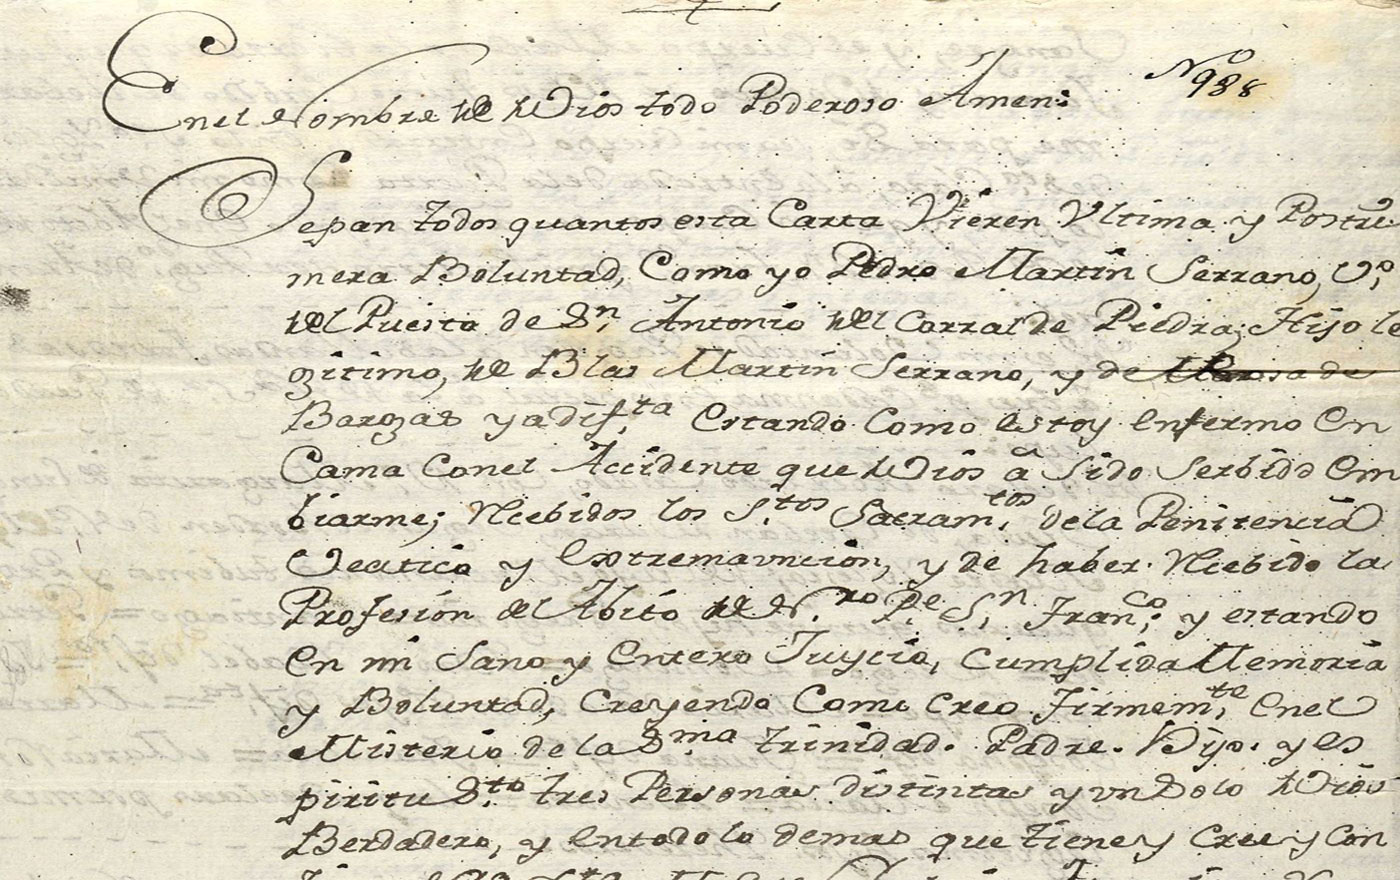 Enel Nombre de Dios todo Poderoso Amen:
No 988
Sepan todos quantos esta Carta Vieren Vltima y Postru
mera Boluntad, Como yo Pedro Martin Serrano, Vo,
del Puesto de Sn, Antonio del Corral de Piedra; Hijo le
gitimo, de Blas Martin Serrano, y de
Bargas yadif,ta Estando Como estoy Enfermo En
Cama Conel Accidente que Dios à Sido Serbido Em
biarme; Recebidos los S,tos Sacramtos, dela Penitencia
Veatico y Extremauncion, y de haber Recebido la
Profesion del Abito de N,ro Pe Sn, Franco, y estando
En mi Sano y Entero Juycio, Cumplida Memoria
y Boluntad, Creyendo Como Creo Firmemte, Enel
Misterio de la Sma trinidad. Padre. Hijo. y es
piritu S,to tres Personas distintas y vn Solo Dios
Berdadero, y Entodo lo demas que tiene y Cree y Con